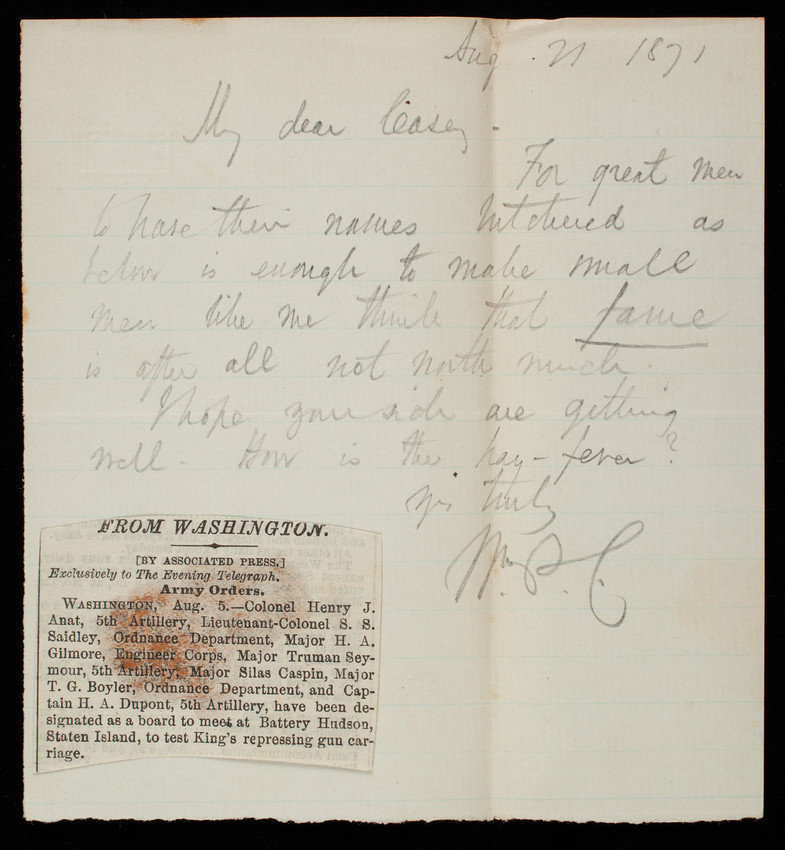 Aug. 21 1871
My dear Casey -
For great men
to have their names butchered as
below is enough to make small
men like me think that fame
is after all not worth much.
I hope your sick are getting
well - How is the hay-fever?
Yrs truly
Wm. P. C.
FROM WASHINGTON.
[BY ASSOCIATED PRESS.]
Exclusively to The Evening Telegraph.
Army Orders.
WASHINGTON, Aug. 5.—Colonel Henry J.
Anat, 5th Artillery, Lieutenant-Colonel S. S.
Saidley, Ordnance Department, Major H. A.
Gilmore, Engineer Corps, Major Truman Sey-
mour, 5th Artillery, Major Silas Caspin, Major
T. G. Boyler, Ordnance Department, and Cap-
tain H. A. Dupont, 5th Artillery, have been de-
signated as a board to meet at Battery Hudson,
Staten Island, to test King's repressing gun car-
riage.